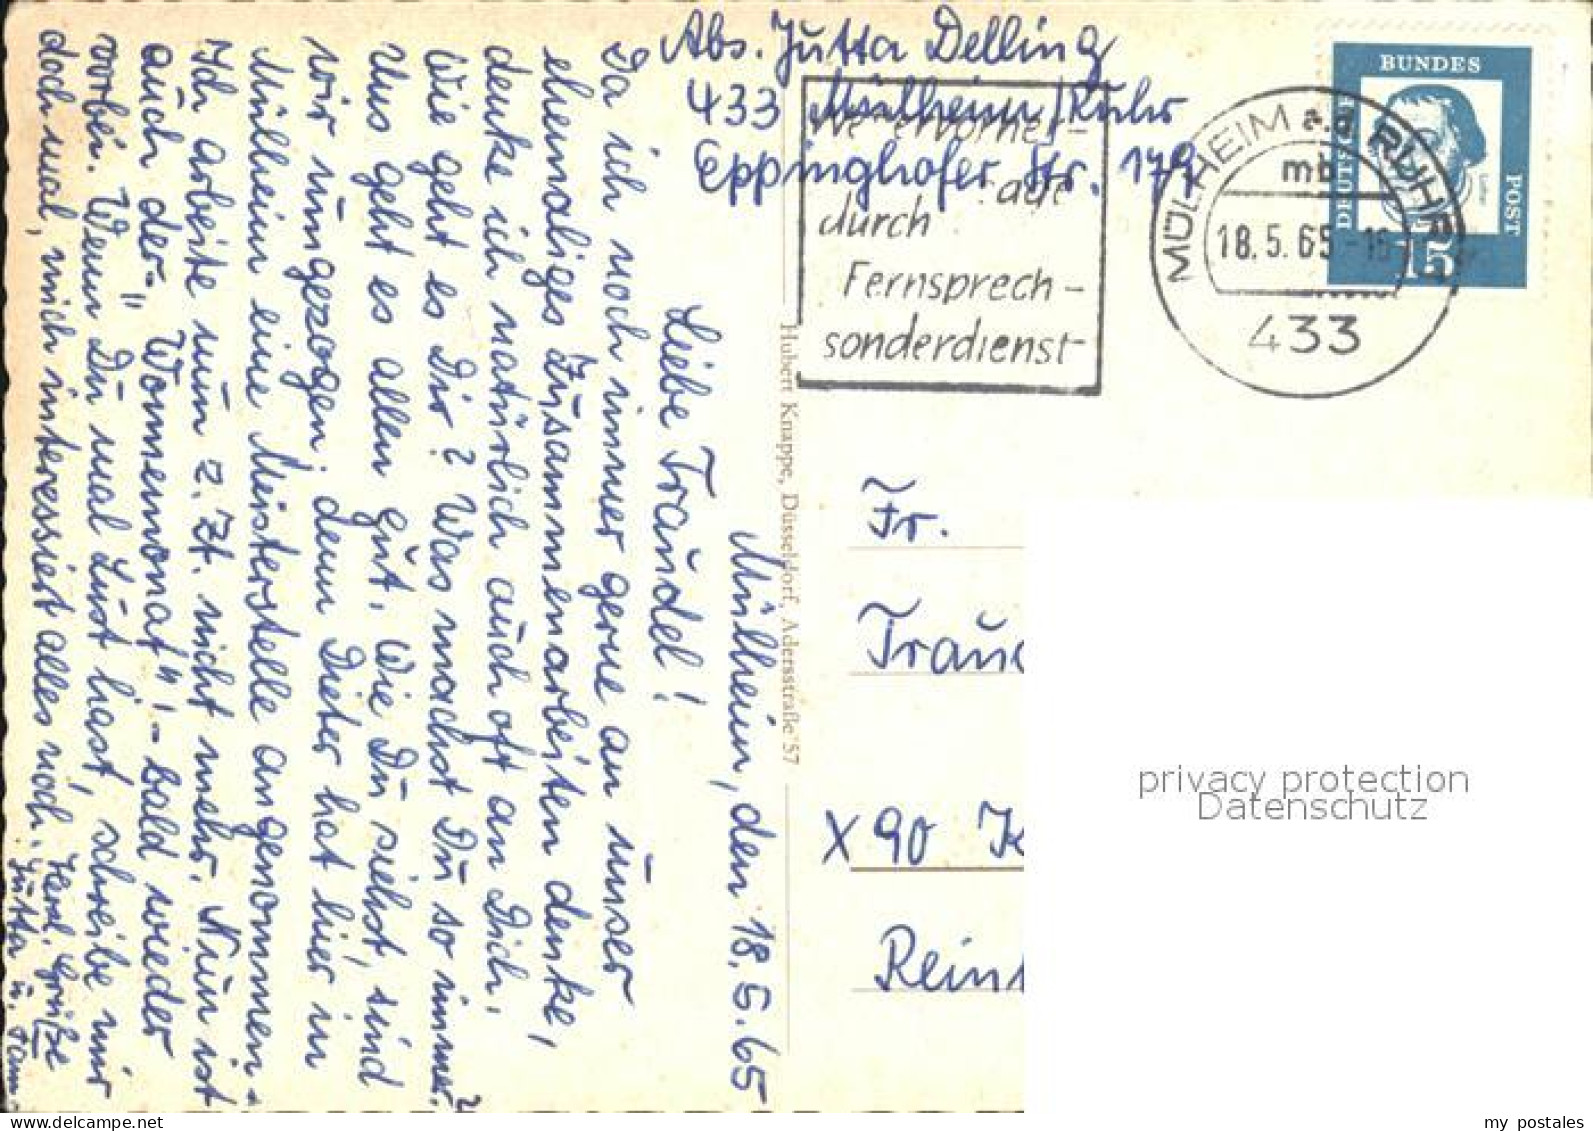 Abs. Jutta Delling
433 Mülheim/Ruhr
Eppinghofer Str. 179
durch
Fernsprech-
sonderdienst
MÜLHEIM a.d. RUHR
mb
18.5.65-16
433
BUNDES
POST
DEUTSCHE
15
Mülheim, den 18.5.65
Liebe Traudel!
Da ich noch immer gerne an unser
ehemaliges Zusammenarbeiten denke,
denke ich natürlich auch oft an Dich.
Wie geht es Dir? Was machst Du so immer?
Uns geht es allen gut. Wie Du siehst, sind
wir umgezogen, denn Dieter hat hier in
Mülheim eine Meisterstelle angenommen.
Ich arbeite nun z. Zt. nicht mehr. Nun ist
auch der "Wonnemonat" bald wieder
vorbei. Wenn Du mal Lust hast, schreibe mir
doch mal, mich interessiert alles noch. Herzl. Grüße
Jutta u. Fam.
Hubert Knappe, Düsseldorf, Adersstraße 57
Fr.
X 90
privacy protection
Datenschutz
my postales
www.delcampe.net